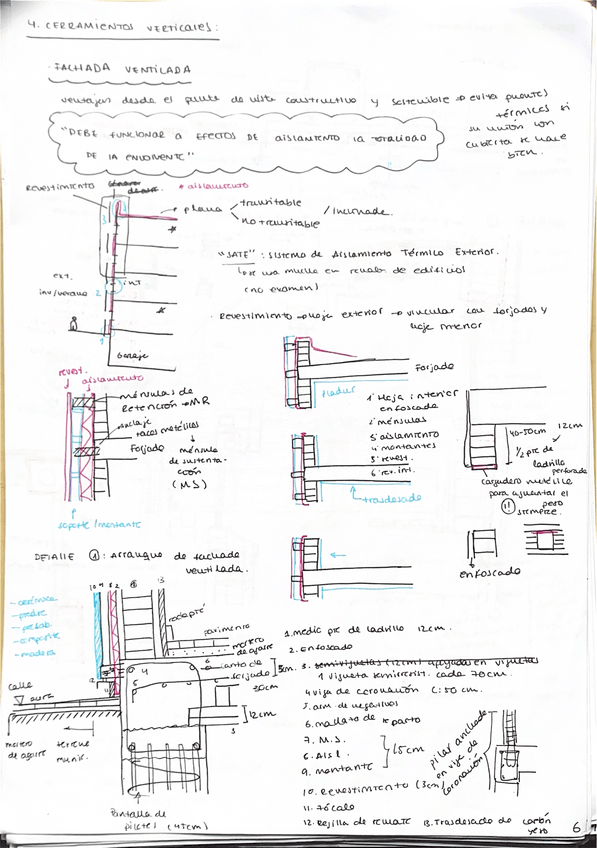 4. CERRAMIENTOS VERTICALES:
· FACHADA VENTILADA
ventajas desde el punto de vista constructivo y sostenible → evita puentes
térmicos si
su unión con
cubierta se hace
bien.
"DEBE FUNCIONAR A EFECTOS DE AISLAMIENTO LA TOTALIDAD
DE LA ENVOLVENTE"
REVESTIMIENTO
* aislamiento
plana
transitable
no transitable
/ Inclinada.
"SATE": Sistema de Aislamiento Térmico Exterior.
(no examen)
ext.
inv/verano
int
1
2
3
Garaje
· REVESTIMIENTO → hoja exterior → vincular con forjados y
hoja interior
revest.
aislamiento
ménsulas de
Retención → MR
anclaje
tacos metálicos
Forjado
ménsula
de sustenta
ción
(M.S)
soporte/montante
Forjado
Pladur
1 Hoja interior
enfoscada
2 ménsulas
3 aislamiento
4 montantes
5 revest.
6 rev. int.
trasdosado
40-50cm
12cm
1/2 pie de
ladrillo
perforado
cargadero metálico
para aguantar el
peso
siempre.
enfoscado
DETALLE ①: Arranque de fachada
ventilada.
- cerámica
- piedra
- prefab
- composite
- madera
rodapié
pavimento
mortero
de agarre
canto de
forjado
30cm
12cm
calle
acera
mortero
de agarre
terreno
Pantalla de
pilotes (45cm)
1. medio pie de ladrillo 12cm.
2. Enfoscado
3. semiviguetas (12cm) apoyadas en viguetas
1 vigueta semirresist. cada 70cm.
4 viga de coronación C: 50 cm.
5. arm. de negativos
6. mallazo de reparto
7. M.S.
8. Aisl.
9. montante
15cm
10. Revestimiento (3cm)
11. zócalo
12. Rejilla de remate
13. Trasdosado de cartón
yeso
pilar anclado
en viga de
coronación
6